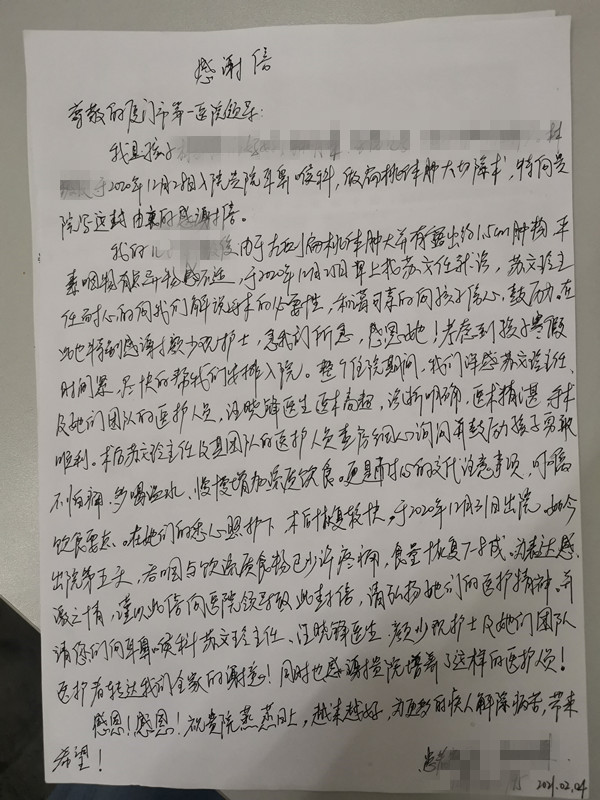 感谢信
尊敬的厦门市第一医院领导:
我是孩子
于2020年12月28日入院贵院耳鼻喉科,做扁桃体肿大切除术,特向贵
院写这封由衷的感谢信。
我的儿 由于左侧扁桃体肿大并有露出约1.5cm肿物,平
素咽物有异物感,于2020年12月21日早上找苏文玲主任就诊,苏文玲主
任耐心的向我们解说手术的必要性,和蔼可亲的向孩子信心、鼓励。在
此也特别感谢颜少玫护士,急我们所急,感恩她!考虑到孩子寒假
时间紧,尽快的帮我们安排入院。整个住院期间,我们深感苏文玲主任、
及她们团队的医护人员,汪晓锋医生医术高超,诊断明确,医术精湛,手术
顺利。术后苏文玲主任及其团队的医护人员查房细心询问并鼓励孩子勇敢
不怕痛,多喝温水、慢慢增加流质饮食。更是耐心的交代注意事项,叮嘱
饮食要点。在她们的悉心照护下,术后恢复较快,于2020年12月31日出院,如今
出院第五天,吞咽与饮流质食物已少许疼痛,食量恢复7-8成。为表达感
激之情,谨以此信向医院领导致此封信,请弘扬她们的医护精神。并
请您们向耳鼻喉科苏文玲主任、汪晓锋医生、颜少玫护士及她们团队
医护者转达我们全家的谢意!同时也感谢贵院培养了这样的医护人员!
感恩!感恩!祝贵院蒸蒸日上,越来越好,为更多的病人解除病苦,带来
希望!
患者
2021.02.04